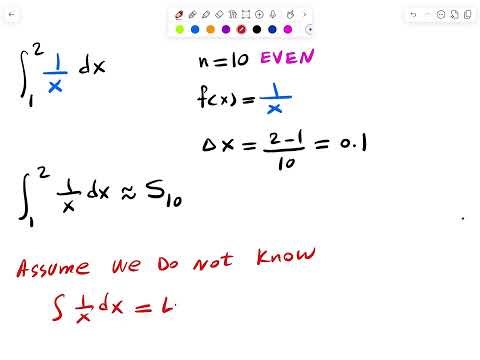 ∫₁² 1/x dx
n = 10 EVEN
f(x) = 1/x
Δx = (2-1)/10 = 0.1
∫₁² 1/x dx ≈ S₁₀
ASSUME WE DO NOT KNOW
∫ 1/x dx = L